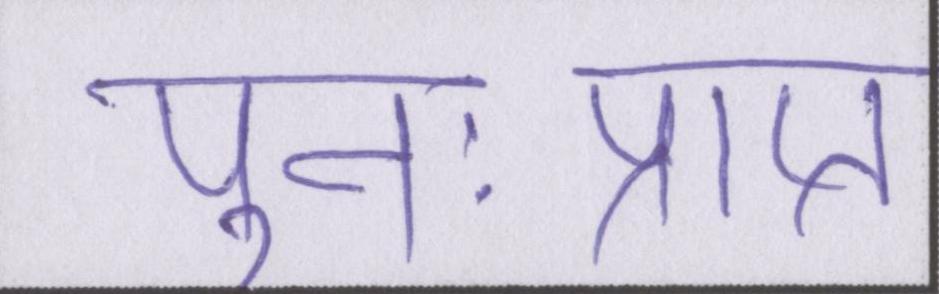 पुनः प्राप्त